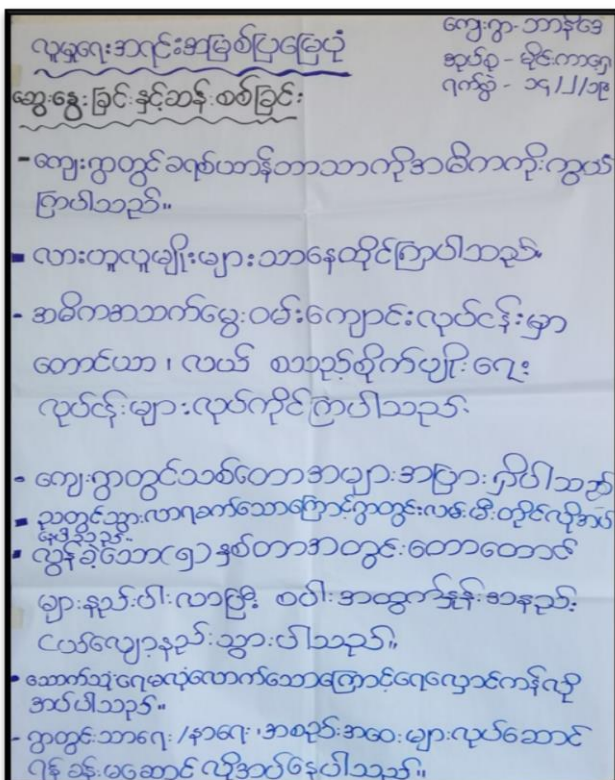 ကျေးရွာ-ဘာန်ဒေ
လူမှုရေးအရင်းအမြစ်ပြမြေပုံ
အုပ်စု - မိုင်းကာရှေ
ရက်စွဲ - ၁၄/၂/၁၉
ဆွေးနွေးခြင်းနှင့်ဆန်းစစ်ခြင်း
- ကျေးရွာတွင်ခရစ်ယာန်ဘာသာကိုအဓိကကိုးကွယ်
ကြပါသည်။
- လားဟူလူမျိုးများသာနေထိုင်ကြပါသည်။
- အဓိကအသက်မွေးဝမ်းကျောင်းလုပ်ငန်းမှာ
တောင်ယာ၊ လယ် စသည့်စိုက်ပျိုးရေး
လုပ်ငန်းများလုပ်ကိုင်ကြပါသည်။
- ကျေးရွာတွင်သစ်တောအများအပြားရှိပါသည်
- ညတွင်သွားလာရခက်သောကြောင့်ရွာတွင်းလမ်းမီးတိုင်လိုအပ်
နေပါသည်။
- လွန်ခဲ့သော(၅)နှစ်တာအတွင်းတောတောင်
များနည်းပါးလာပြီး စပါးအထွက်နှုန်းအနည်း
ငယ်လျော့နည်းသွားပါသည်။
- သောက်သုံးရေမလုံလောက်သောကြောင့်ရေလှောင်ကန်လို
အပ်ပါသည်။
- ရွာတွင်းသာရေး/နာရေး အစည်းအဝေးများလုပ်ဆောင်
ရန် ခန်းမဆောင် လိုအပ်နေပါသည်။